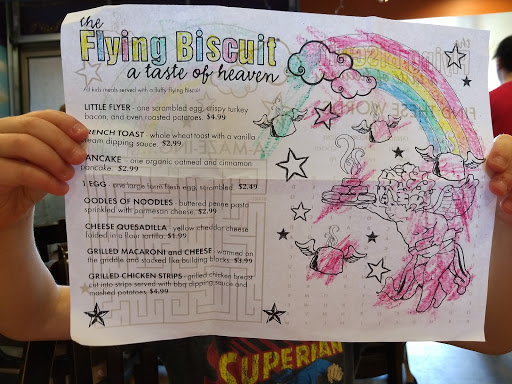 the
Flying Biscuit
a taste of heaven
All kids meals served with a fluffy Flying Biscuit
LITTLE FLYER - one scrambled egg, crispy turkey
bacon, and oven roasted potatoes. $4.99
FRENCH TOAST - whole wheat toast with a vanilla
cream dipping sauce. $2.99
PANCAKE - one organic oatmeal and cinnamon
pancake. $2.99
1 EGG - one large farm fresh egg, scrambled. $2.49
OODLES OF NOODLES - buttered penne pasta
sprinkled with parmesan cheese. $2.99
CHEESE QUESADILLA - yellow cheddar cheese
folded into flour tortilla. $1.99
GRILLED MACARONI and CHEESE - warmed on
the griddle and stacked like building blocks. $3.99
GRILLED CHICKEN STRIPS - grilled chicken breast
cut into strips served with bbq dipping sauce and
mashed potatoes. $4.99
CUPERIAN